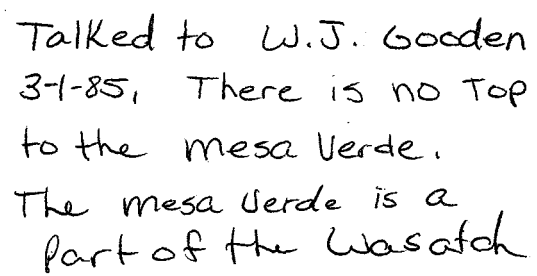 Talked to W.J. Gooden
3-1-85, There is no Top
to the mesa Verde.
The mesa Verde is a
part of the Wasatch